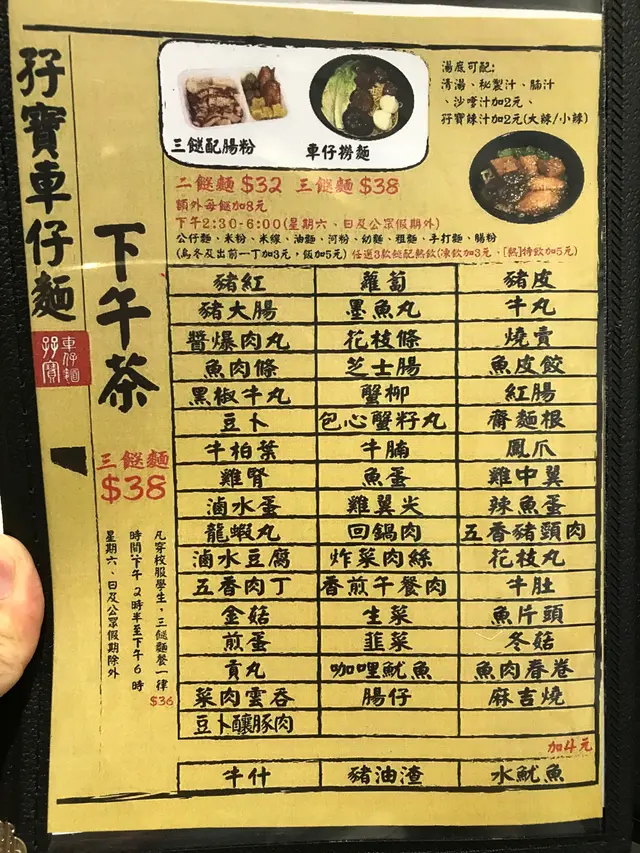 孖寶車仔麵
孖寶
車仔麵
下午茶
三餸麵
$38
凡穿校服學生，三餸麵餐一律
$36
時間:下午2時半至下午6時
星期六、日及公眾假期除外
三餸配腸粉
車仔撈麵
湯底可配:
清湯、秘製汁、腩汁
、沙嗲汁加2元、
孖寶辣汁加2元(大辣/小辣)
二餸麵 $32 三餸麵 $38
額外每餸加8元
下午2:30-6:00(星期六、日及公眾假期外)
公仔麵、米粉、米線、油麵、河粉、幼麵、粗麵、手打麵、腸粉
(烏冬及出前一丁加3元，飯加5元) 任選3款餸配熱飲(凍飲加3元、[熱]特飲加5元)
豬紅 蘿蔔 豬皮
豬大腸 墨魚丸 牛丸
醬爆肉丸 花枝條 燒賣
魚肉條 芝士腸 魚皮餃
黑椒牛丸 蟹柳 紅腸
豆卜 包心蟹籽丸 齋麵根
牛柏葉 牛腩 鳳爪
雞腎 魚蛋 雞中翼
滷水蛋 雞翼尖 辣魚蛋
龍蝦丸 回鍋肉 五香豬頸肉
滷水豆腐 炸菜肉絲 花枝丸
五香肉丁 香煎午餐肉 牛肚
金菇 生菜 魚片頭
煎蛋 韮菜 冬菇
貢丸 咖哩魷魚 魚肉春卷
菜肉雲吞 腸仔 麻吉燒
豆卜釀豚肉
加4元
牛什 豬油渣 水魷魚